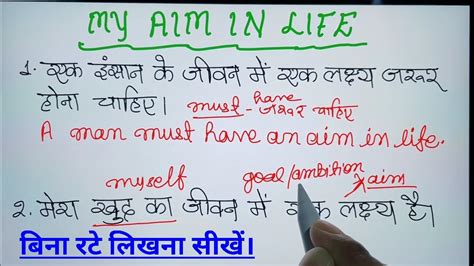 MY AIM IN LIFE
1. एक इंसान के जीवन में एक लक्ष्य जरूर
होना चाहिए। must have - जरूर चाहिए
A man must have an aim in life.
myself goal/ambition aim
2. मेरा खुद का जीवन में एक लक्ष्य है।
बिना रटे लिखना सीखें।